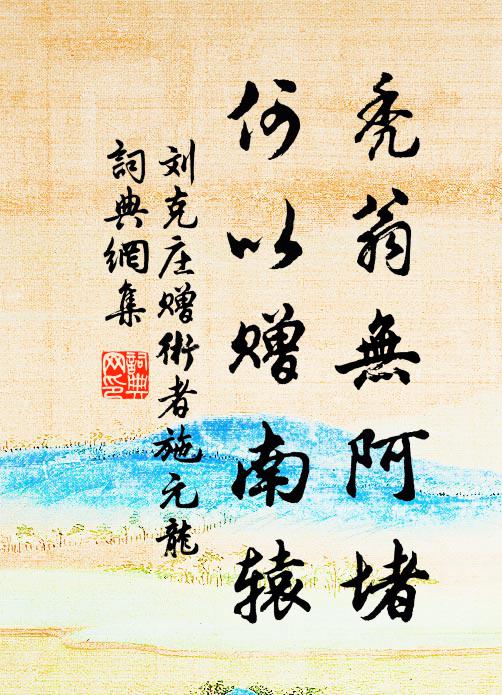 禿翁無阿堵
何以赠南辕
刘克庄赠術者施元龍
詞典網集
詞典網印